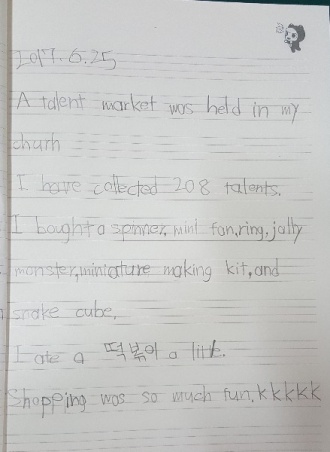 2017.6.25
A talent market was held in my
churh
I have collected 208 talents.
I bought a spinner, mini fan, ring, jally
monster, miniature making kit, and
snake cube.
I ate a 떡볶이 a littl.
Shopping was so much fun. kkkkk